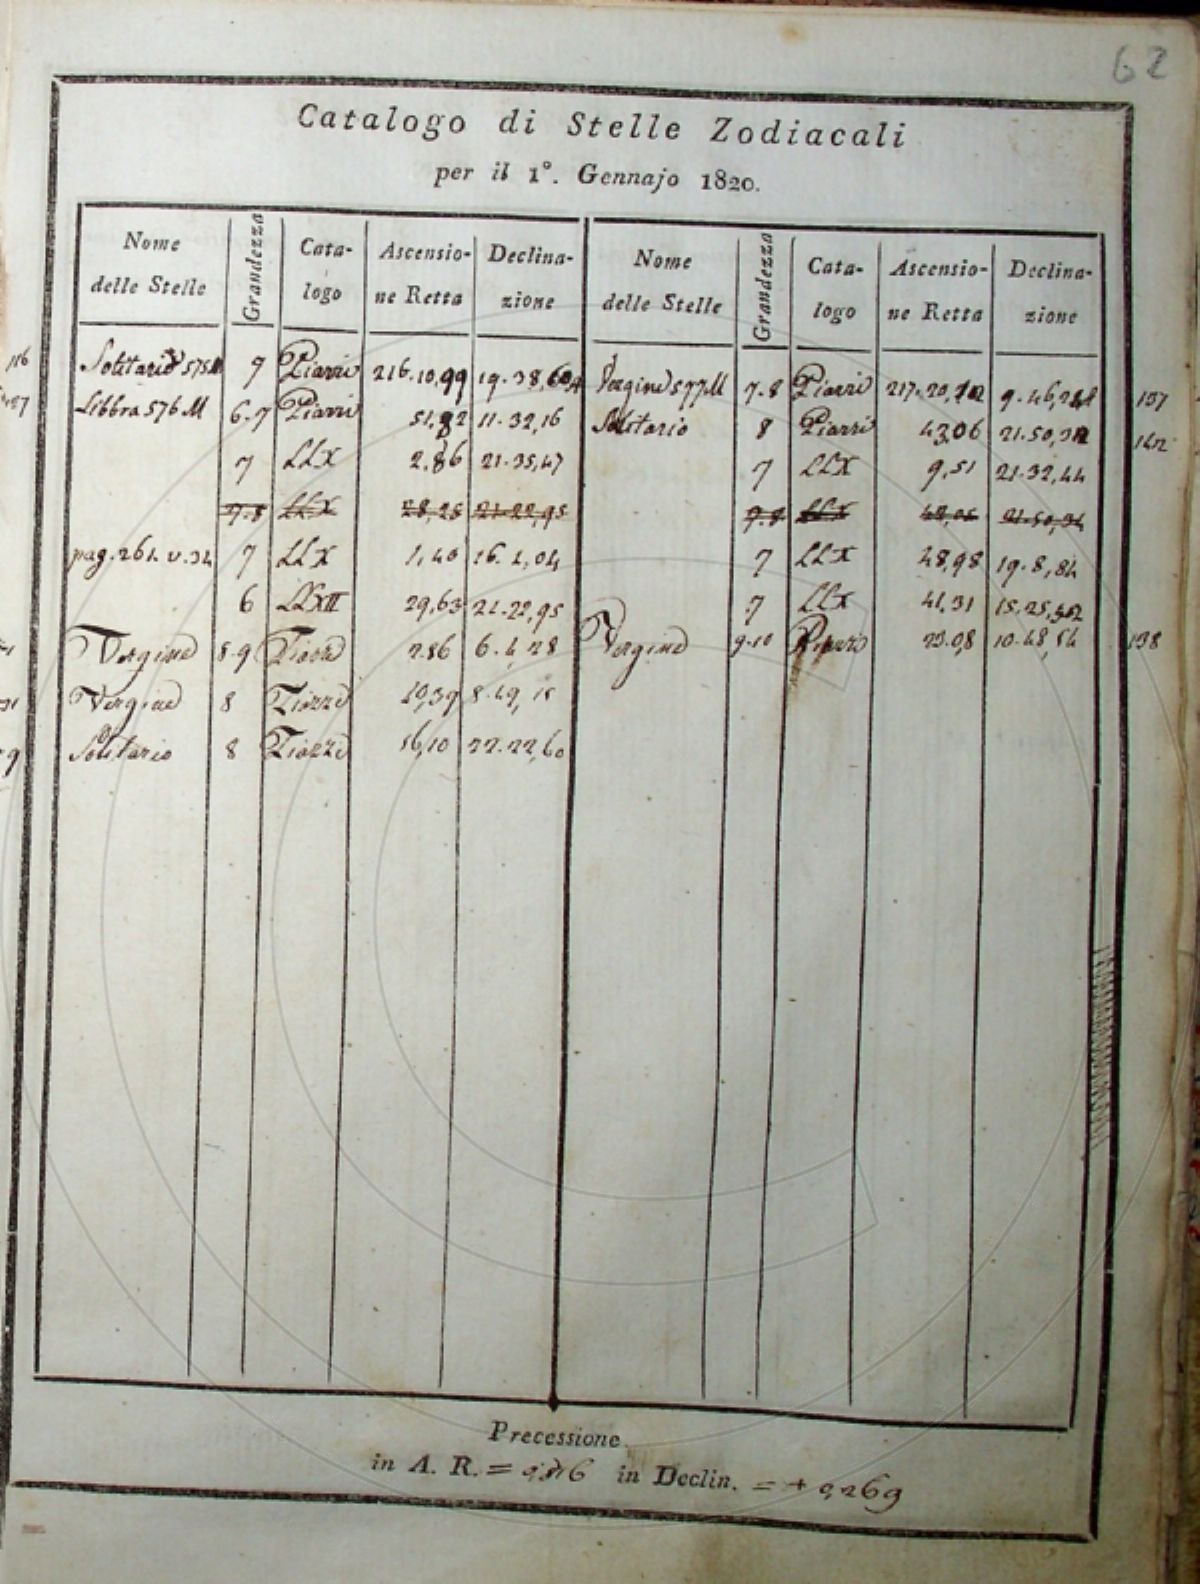 62
Catalogo di Stelle Zodiacali
per il 1°. Gennajo 1820.
Nome delle Stelle Grandezza Cata-logo Ascensio-ne Retta Declina-zione Nome delle Stelle Grandezza Cata-logo Ascensio-ne Retta Declina-zione
116 Solitario 575 M 9 Piazzi 216.10,99 19.38, Vergine 577 M 7.8 Piazzi 217.20, 9.46, 137
Libbra 576 M 6.7 Piazzi 51,82 11.32,16 Solitario 8 Piazzi 43,06 21.50, 142
7 LLX 2,86 21.35,47 7 LLX 9,51 21.32,44
7.8 LLX 28,25 21.22,95 7.8 LLX 21.50,
pag. 261. v. 34 7 LLX 1,40 16. 04 7 LLX 48,98 19.8,84
6 LLXIII 29,63 21.22,95 7 LLX 41,31 15.25,
Vergine 8.9 Piazzi 2.86 6. 28 Vergine 9.10 Piazzi 23.08 10.48,54 138
Vergine 8 Piazzi 10,39 8.49,
Solitario 8 Piazzi 56,10 22.22,60
Precessione
in A. R. = in Declin. = + 0,269